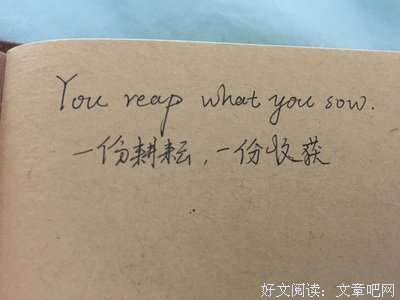 You reap what you sow.
一份耕耘，一份收获
好文阅读：文章吧网